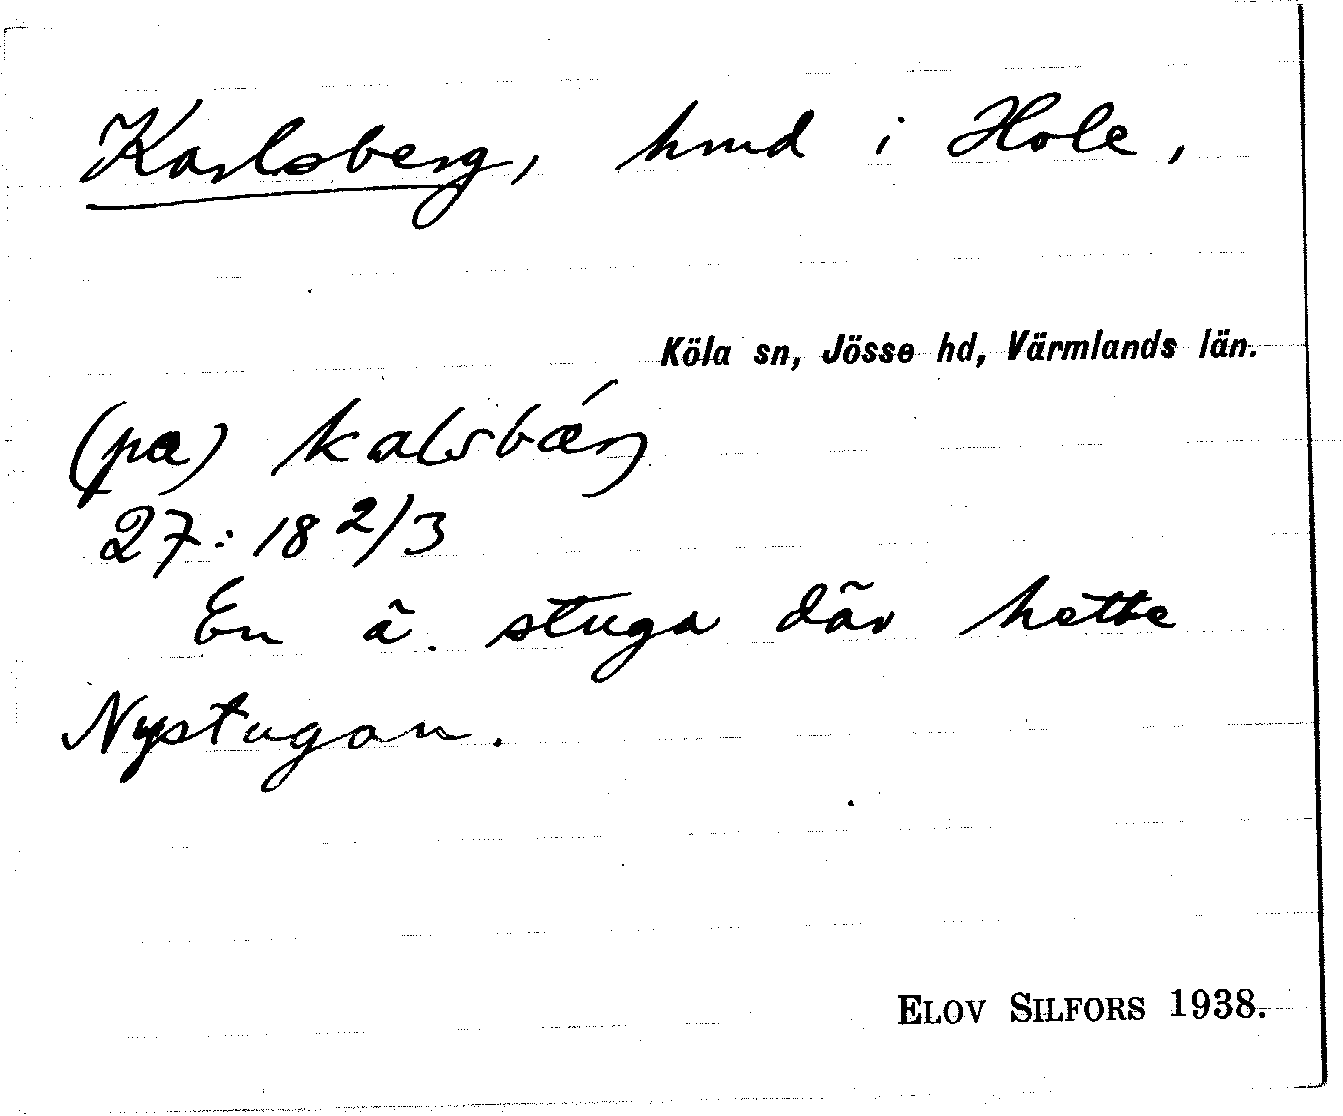 Karlsberg, hmd i Hole,
Köla sn, Jösse hd, Värmlands län.
(pa) kalsbǽŋ
27:18 2/3
En ä. stuga där hette
Nystugan.
ELOV SILFORS 1938.